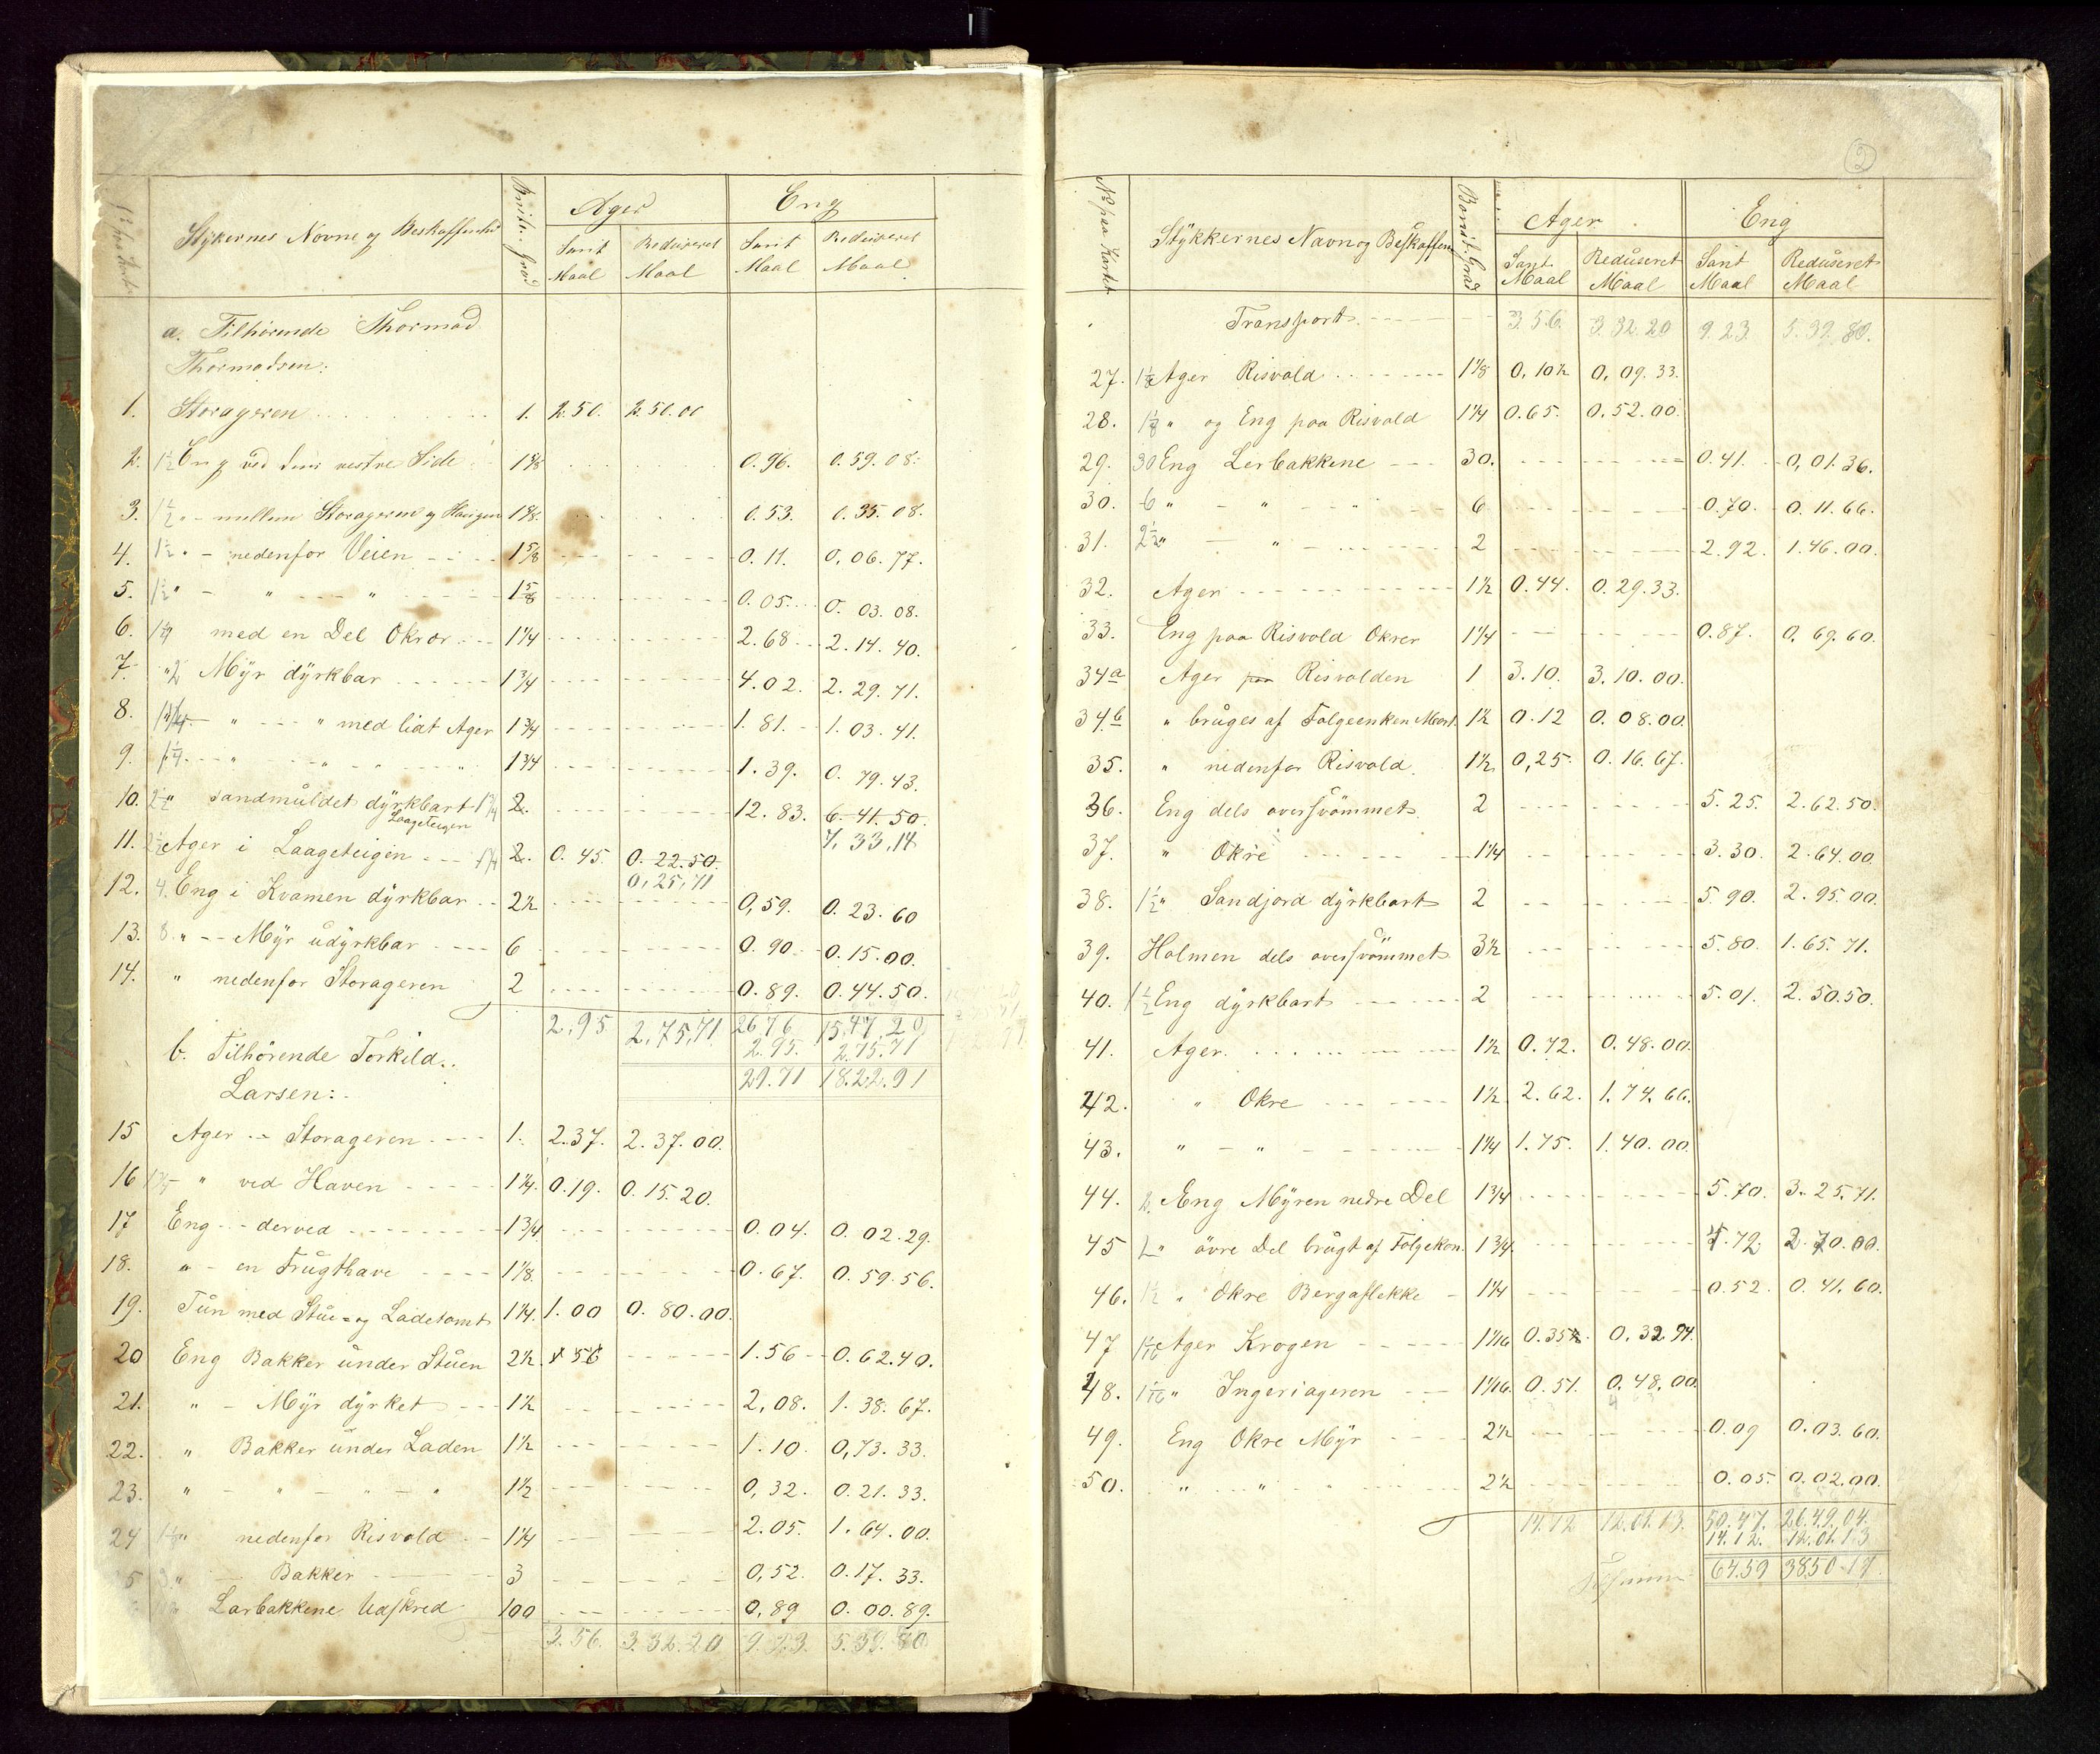 Stykkernes Navne og Beskaffenhed Bonit. Grad Ager Eng
Sant Maal Reduseret Maal Sant Maal Reduseret Maal
a. Tilhörende Thormod
Thormodsen:
1. Storageren 1. 2.50. 2.50.00
2. 1½ Eng ved dens vestre Side 1⅝ 0.96. 0.59.08.
3. 1½ " - mellem Storageren og Haugen 1⅝. 0.53. 0.35.08.
4. 1½ " - nedenfor Veien 1⅝ 0.11. 0.06.77.
5. 1½ " - " - " 1⅝ 0.05. 0.03.08.
6. 1¼ med en Del Okrer 1¼ 2.68 2.14.40.
7. " 2 Myr dyrkbar 1¾ 4.02. 2.29.71.
8. 1¾ " " med lidt Ager 1¾ 1.81. 1.03.41.
9. " " " 1¾ 1.39. 0.79.43.
10. 2½ " sandmuldet dyrkbart 1¾ 2. 12.83. 6.41.50.
Laageteigen 7,33,14
11. 2½ Ager i Laageteigen 1¾ 2. 0.45. 0.22.50.
0,25,71
12. 4. Eng i Kvamen dyrkbar 2½ 0,59. 0.23.60
13. 8. " - Myr udyrkbar 6 0.90 0.15.00.
14. " nedenfor Storageren 2 0.89. 0.44.50.
2,95 2,75,71 26,76 15,47,20
2.95. 2.75.71
29.71 18.22.91
b. Tilhörende Torkild
Larsen:
15 Ager - Storageren 1. 2.37. 2.37.00.
16 " ved Haven 1¼. 0.19. 0.15.20.
17 Eng - derved 1¾ 0.04. 0.02.29.
18. " - en Frugthave 1⅛. 0.67. 0.59.56.
19. Tun med Stue- og Ladetomt 1¼. 1.00 0.80.00.
20 Eng Bakker under Stuen 2½. 1.56 1.56 0.62.40.
21. " - Myr dyrket 1½ 2,08. 1.38.67.
22. " Bakker under Laden 1½ 1.10. 0,73.33.
23. " - " - " - " 1½ 0,32. 0.21.33.
24 " nedenfor Risvold 1¼ 2.05. 1.64.00.
5 3 " - Bakker 3 0,52. 0.17.33.
Lerbakkene Udskred 100 0,89 0.00.89.
3.56. 3.32.20 9.23. 5.39.80
2
No paa Kartet Stykkernes Navn og Beskaffen Bonit. Grad Ager Eng
Sant Maal Reduseret Maal Sant Maal Reduseret Maal
Transport 3.56. 3.32.20 9.23. 5.39.80.
27. 1⅛ Ager Risvold 1⅛ 0,10½ 0,09.33.
28. 1⅛ " og Eng paa Risvold 1¼ 0.65. 0.52.00.
29. 30 Eng Lerbakkene 30. 0.41. 0,01.36.
30. 6 " - " 6 0.70. 0.11.66.
31. 2½ " - " - 2 2.92. 1.46.00.
32. Ager 1½ 0.44. 0.29.33.
33. Eng paa Risvold Okrer 1¼ 0.87. 0.69.60.
34a Ager paa Risvolden 1 3.10. 3.10.00.
34b " bruges af Folgeenken Mart. 1½ 0.12 0.08.00.
35. " nedenfor Risvold. 1½ 0,25. 0.16.67.
36. Eng dels oversvömmet 2 5.25. 2.62.50.
37. " Okre 1¼ 3.30. 2.64.00.
38. 1½ " Sandjord dyrkbart 2 5.90. 2.95.00.
39. Holmen dels oversvömmet 3½ 5.80. 1.65.71.
40. 1½ Eng dyrkbart 2 5.01. 2.50.50.
41. Ager. 1½ 0.72. 0.48.00.
42. " Okre 1½ 2.62. 1.74.66.
43. " - " 1¼ 1.75. 1.40.00.
44. 2. Eng Myren nedre Del 1¾ 5.70. 3.25.71.
45 2 " övre Del brugt af Folgekon. 1¾. 4.72. 2.70.00.
46. 1½ " Okre Bergaflekke 1¼ 0.52. 0.41.60.
47 1 1/16 Ager Krogen 1 1/16 0.35½. 0,32.94.
48. 1 1/16 " Ingeriageren 1 1/16. 0.51. 0,48,00.
49. Eng Okre Myr 2½ 0.09 0.03.60.
50. " " 2½ 0.05. 0.02.00.
14.12 12.01.13. 50.47. 26.49.04.
14.12. 12.01.13
64.59 38.50.17.